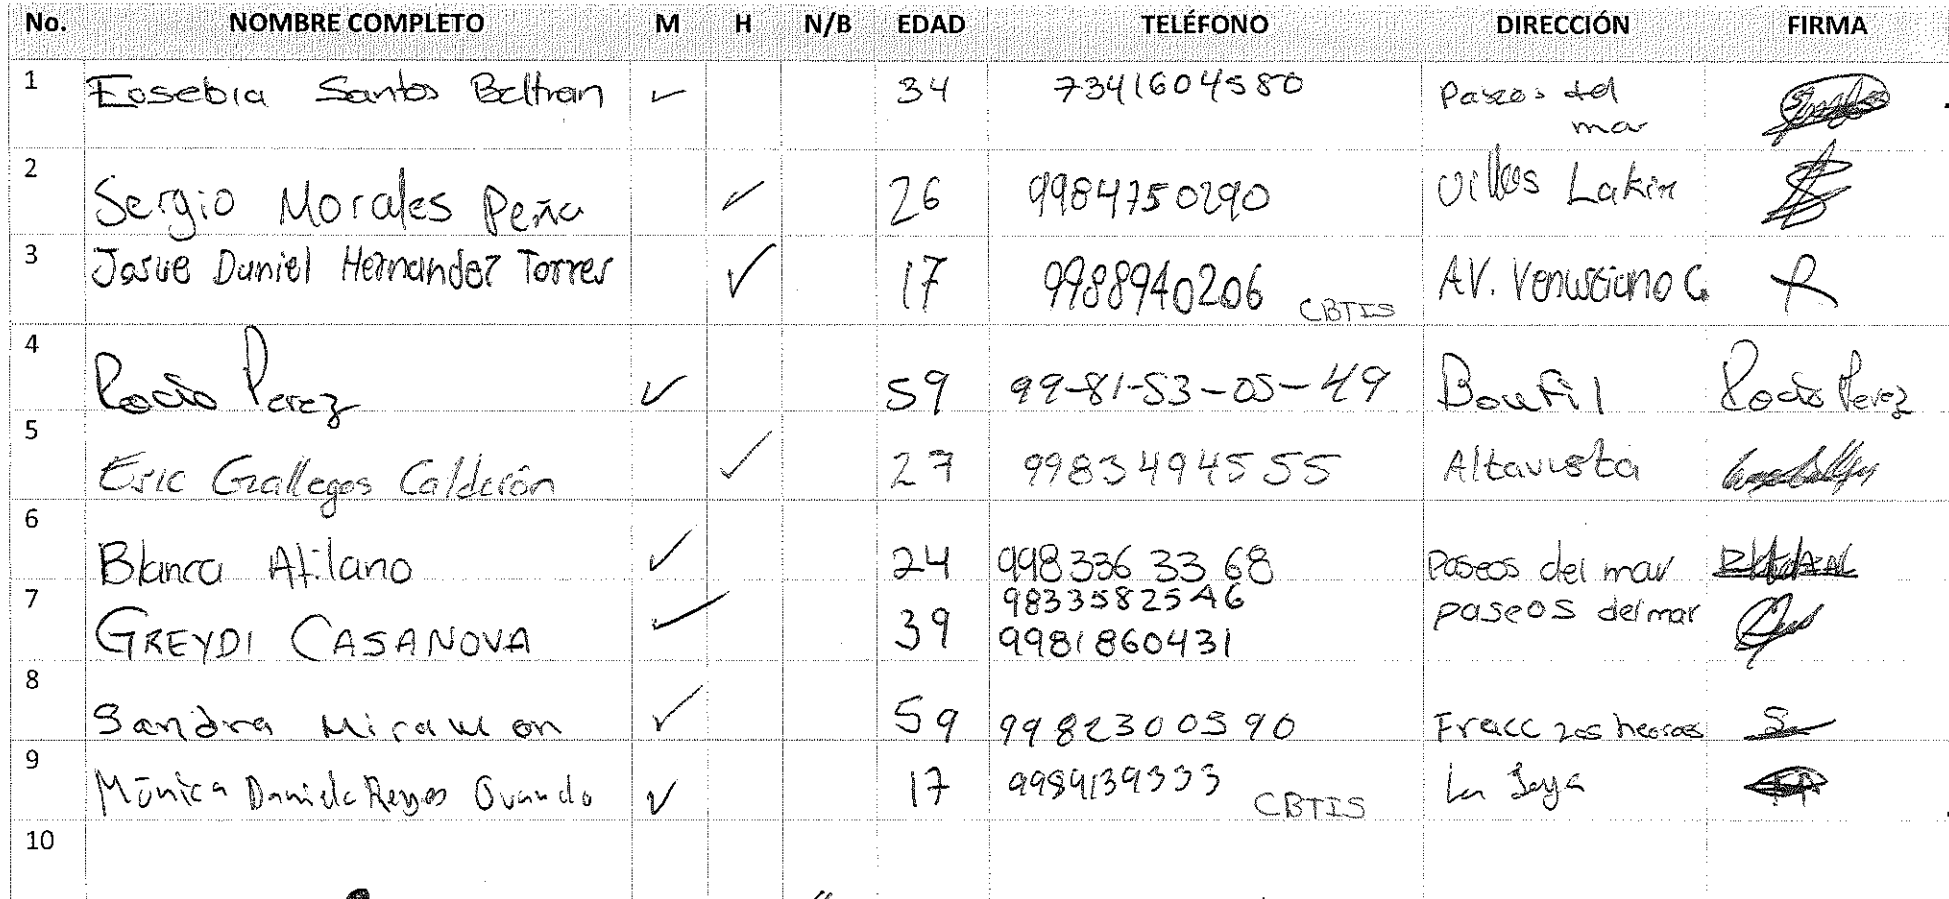 No. NOMBRE COMPLETO M H N/B EDAD TELÉFONO DIRECCIÓN FIRMA
1 Eosebia Santos Beltran ✓ 34 7341604580 Paseos del
mar
2 Sergio Morales Peña ✓ 26 9984750290 Villas Lakin
3 Josue Daniel Hernandez Torres ✓ 17 9988940206 CBTIS AV. Venustiano C.
4 Rocío Perez ✓ 59 99-81-53-05-49 Bonfil Rocío Perez
5 Eric Gallegos Calderón ✓ 27 9983494555 Altavista
6 Blanca Atilano ✓ 24 998 336 33 68 Paseos del mar
7 GREYDI CASANOVA ✓ 39 9833582546 paseos del mar
9981860431
8 Sandra Miramon ✓ 59 9982300590 Fracc Los heroes
9 Mónica Daniela Reyes Ovando ✓ 17 9989139333 CBTIS La Joya
10